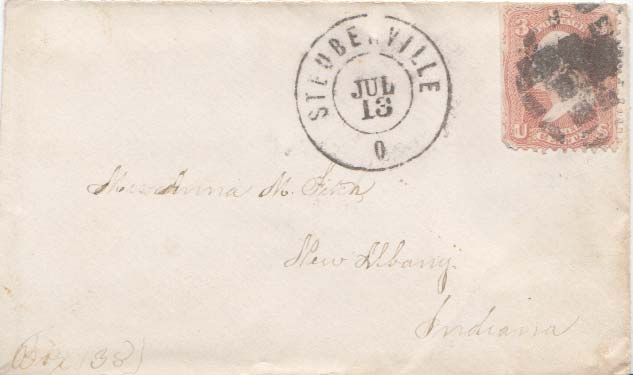 STEUBENVILLE
JUL
13
O
3
U S
Miss Anna M. Fitch
New Albany.
Indiana
(Box 138)